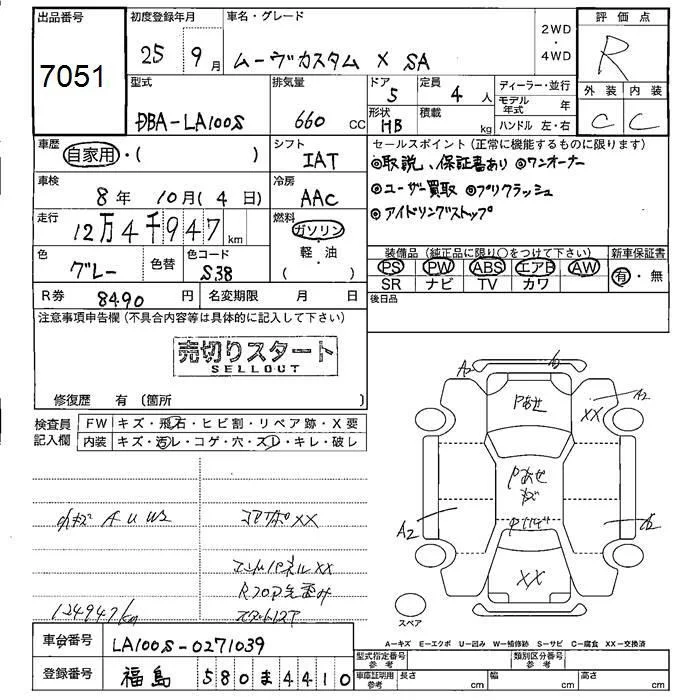 出品番号
7051
初度登録年月
25 9月
車名・グレード
ムーヴカスタム X SA
2WD
・
4WD
評価点
R
型式
DBA-LA100S
排気量
660 CC
ドア
5
定員
4 人
形状
HB
積載
kg
ディーラー・並行
モデル年式 年
ハンドル 左・右
外装 内装
C C
車歴
自家用・( )
シフト
IAT
車検
8年 10月(4日)
冷房
AAC
走行
12万4千947km
燃料
ガソリン
軽・油
( )
色
グレー
色替
色コード
S38
R券 8490 円
名変期限 月 日
セールスポイント(正常に機能するものに限ります)
◎取説、保証書あり ◎ワンオーナー
◎ユーザー買取 ◎プリクラッシュ
◎アイドリングストップ
装備品(純正品に限り〇をつけて下さい)
PS PW ABS エアB AW
SR ナビ TV カワ
新車保証書
有・無
後日品
注意事項申告欄(不具合内容等は具体的に記入して下さい)
売切りスタート
SELLOUT
修復歴 有(箇所 )
検査員
記入欄
FW キズ・飛石・ヒビ割・リペア跡・X要
内装 キズ・汚レ・コゲ・穴・スレ・キレ・破レ
A U W2
コアサポXX
XX
124947km
A2
A2
XX
Pあせ
Pあせ
A2
XX
スペア
A-キズ E-エクボ U-凹み W-補修跡 S-サビ C-腐食 XX-交換済
車台番号 LA100S-0271039
登録番号 福島 580ま4410
型式指定番号
参考
類別区分番号
参考
車庫証明用
参考
長さ cm
幅 cm
高さ cm